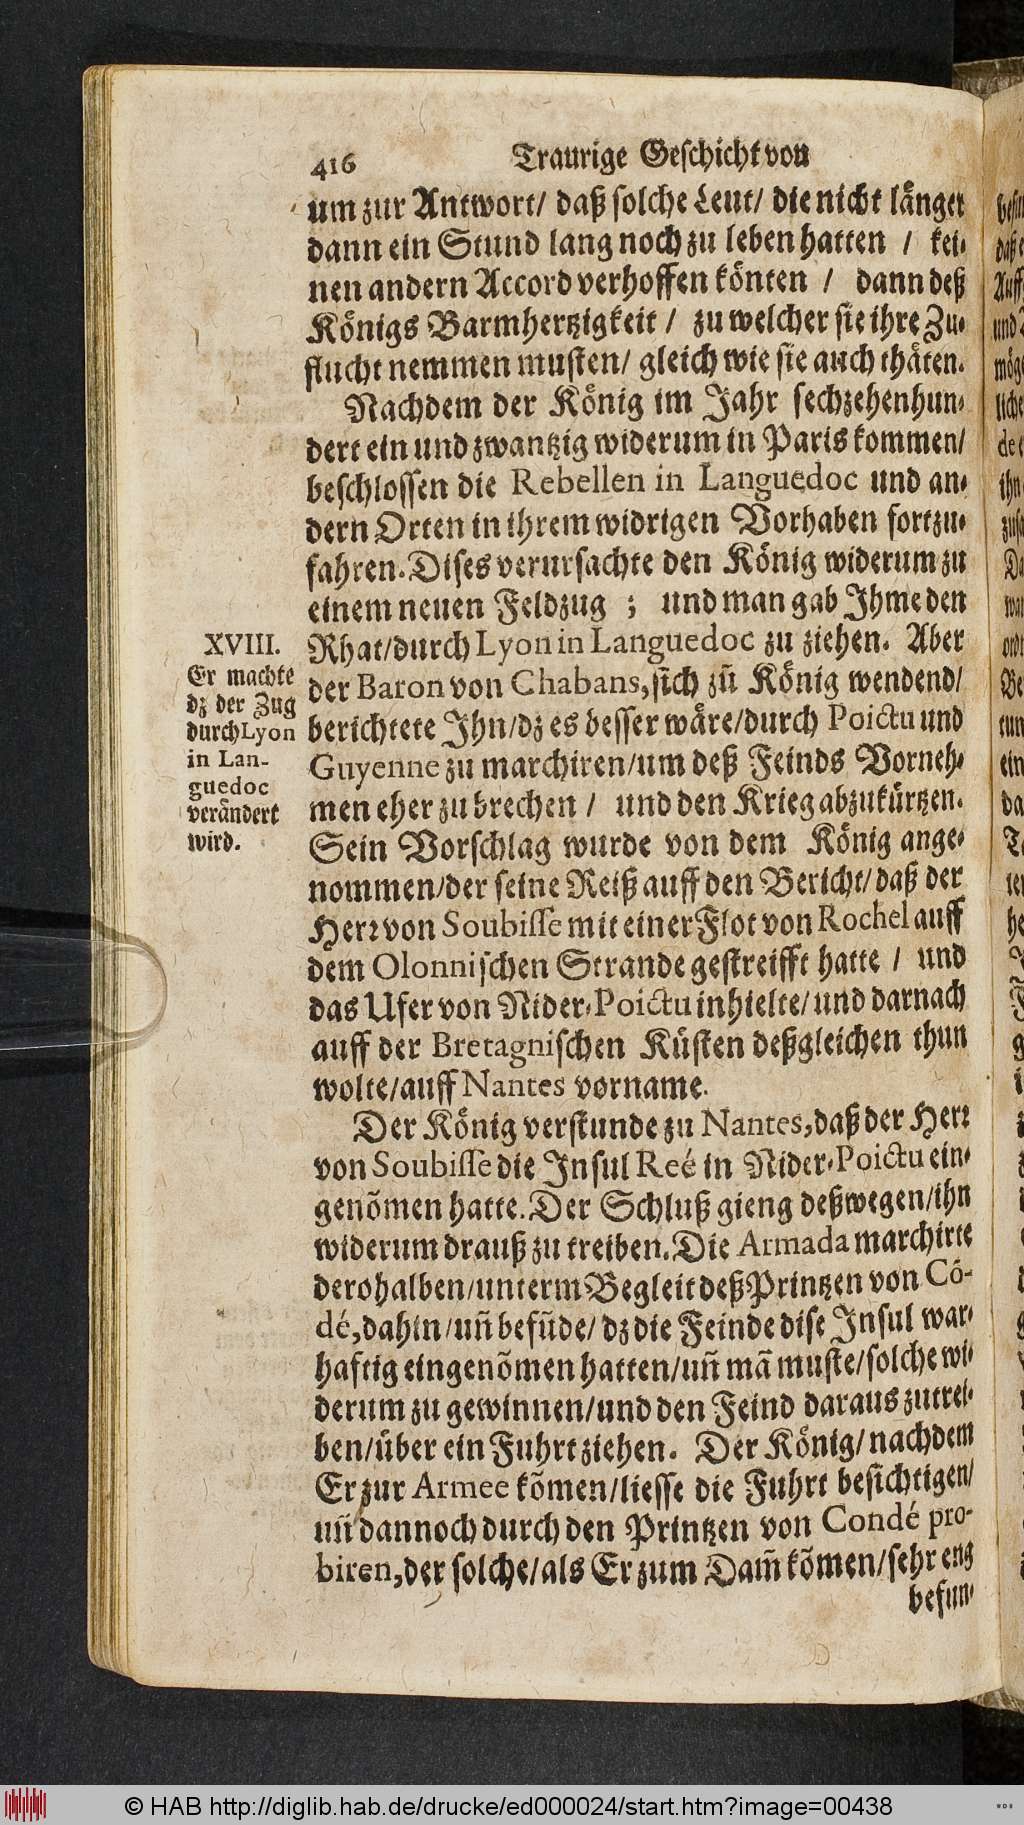 416 Traurige Geschicht von
um zur Antwort/ daß solche Leut/ die nicht länger
dann ein Stund lang noch zu leben hatten / kei-
nen andern Accord verhoffen könten / dann deß
Königs Barmhertzigkeit / zu welcher sie ihre Zu-
flucht nemmen musten/ gleich wie sie auch thäten.
Nachdem der König im Jahr sechzehenhun-
dert ein und zwantzig widerum in Paris kommen/
beschlossen die Rebellen in Languedoc und an-
dern Orten in ihrem widrigen Vorhaben fortzu-
fahren. Dises verursachte den König widerum zu
einem neuen Feldzug ; und man gab Ihme den
Rhat/durch Lyon in Languedoc zu ziehen. Aber
der Baron von Chabans, sich zũ König wendend/
berichtete Ihn/dz es besser wäre/durch Poictu und
Guyenne zu marchiren/um deß Feinds Vorneh-
men eher zu brechen / und den Krieg abzukürtzen.
Sein Vorschlag wurde von dem König ange-
nommen/der seine Reiß auff den Bericht/daß der
Herr von Soubisse mit einer Flot von Rochel auff
dem Olonnischen Strande gestreifft hatte / und
das Ufer von Nider-Poictu inhielte/und darnach
auff der Bretagnischen Küsten deßgleichen thun
wolte/auff Nantes vorname.
Der König verstunde zu Nantes, daß der Herr
von Soubisse die Insul Reé in Nider-Poictu ein-
genõmen hatte. Der Schluß gieng deßwegen/ihn
widerum drauß zu treiben. Die Armada marchirte
derohalben/unterm Begleit deß Printzen von Cõ-
dé, dahin/uñ befũde/ dz die Feinde dise Insul war-
haftig eingenõmen hatten/uñ mã muste/solche wi-
derum zu gewinnen/und den Feind daraus zutrei-
ben/über ein Fuhrt ziehen. Der König/nachdem
Er zur Armee kõmen/liesse die Fuhrt besichtigen/
uñ dannoch durch den Printzen von Condé pro-
biren, der solche/als Er zum Dam̃ kõmen/sehr eng
befun-
XVIII.
Er machte
dz der Zug
durch Lyon
in Lan-
guedoc
verändert
wird.
© HAB http://diglib.hab.de/drucke/ed000024/start.htm?image=00438